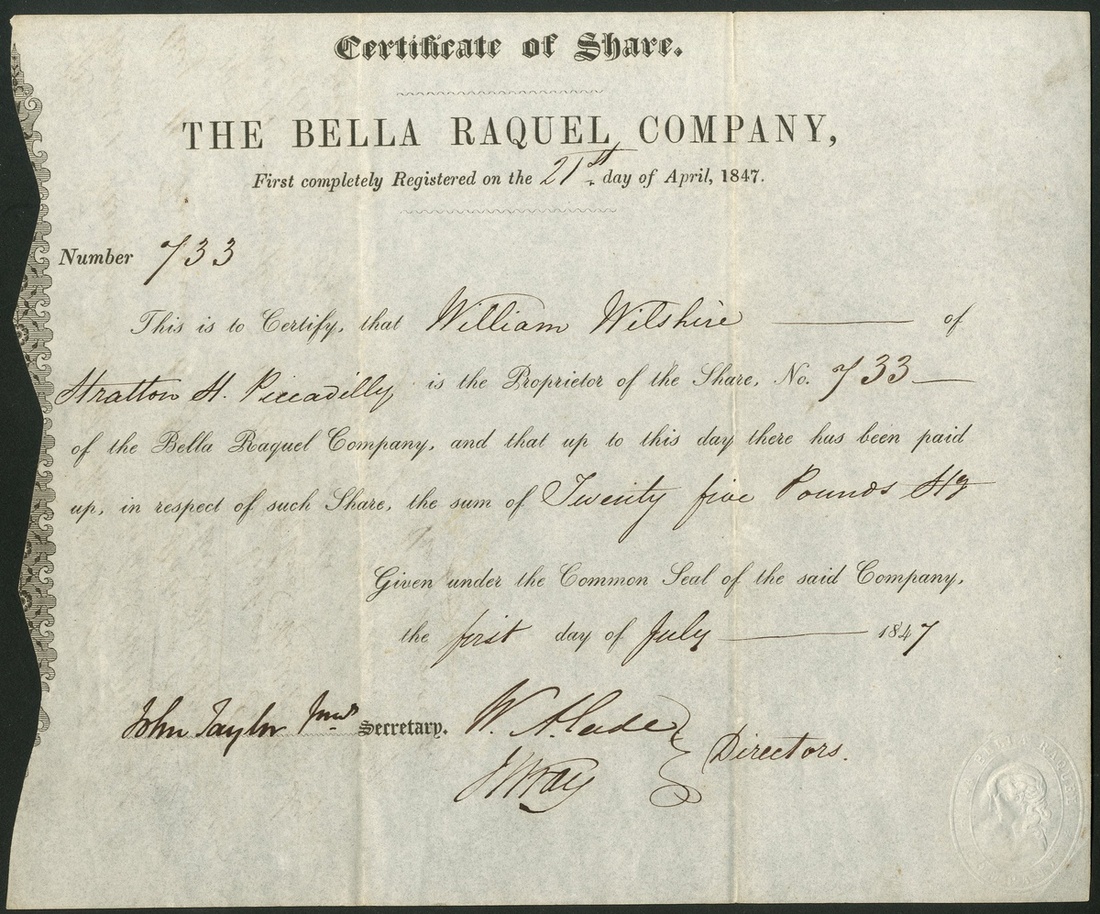 Certificate of Share.
THE BELLA RAQUEL COMPANY,
First completely Registered on the 21st day of April, 1847.
Number 733
This is to Certify, that William Wilshire of
Stratton St. Piccadilly is the Proprietor of the Share, No. 733
of the Bella Raquel Company, and that up to this day there has been paid
up, in respect of such Share, the sum of Twenty five Pounds Stg
Given under the Common Seal of the said Company,
the first day of July 1847
John Taylor Junr Secretary. W. A.
Directors.
BELLA RAQUEL
COMPANY